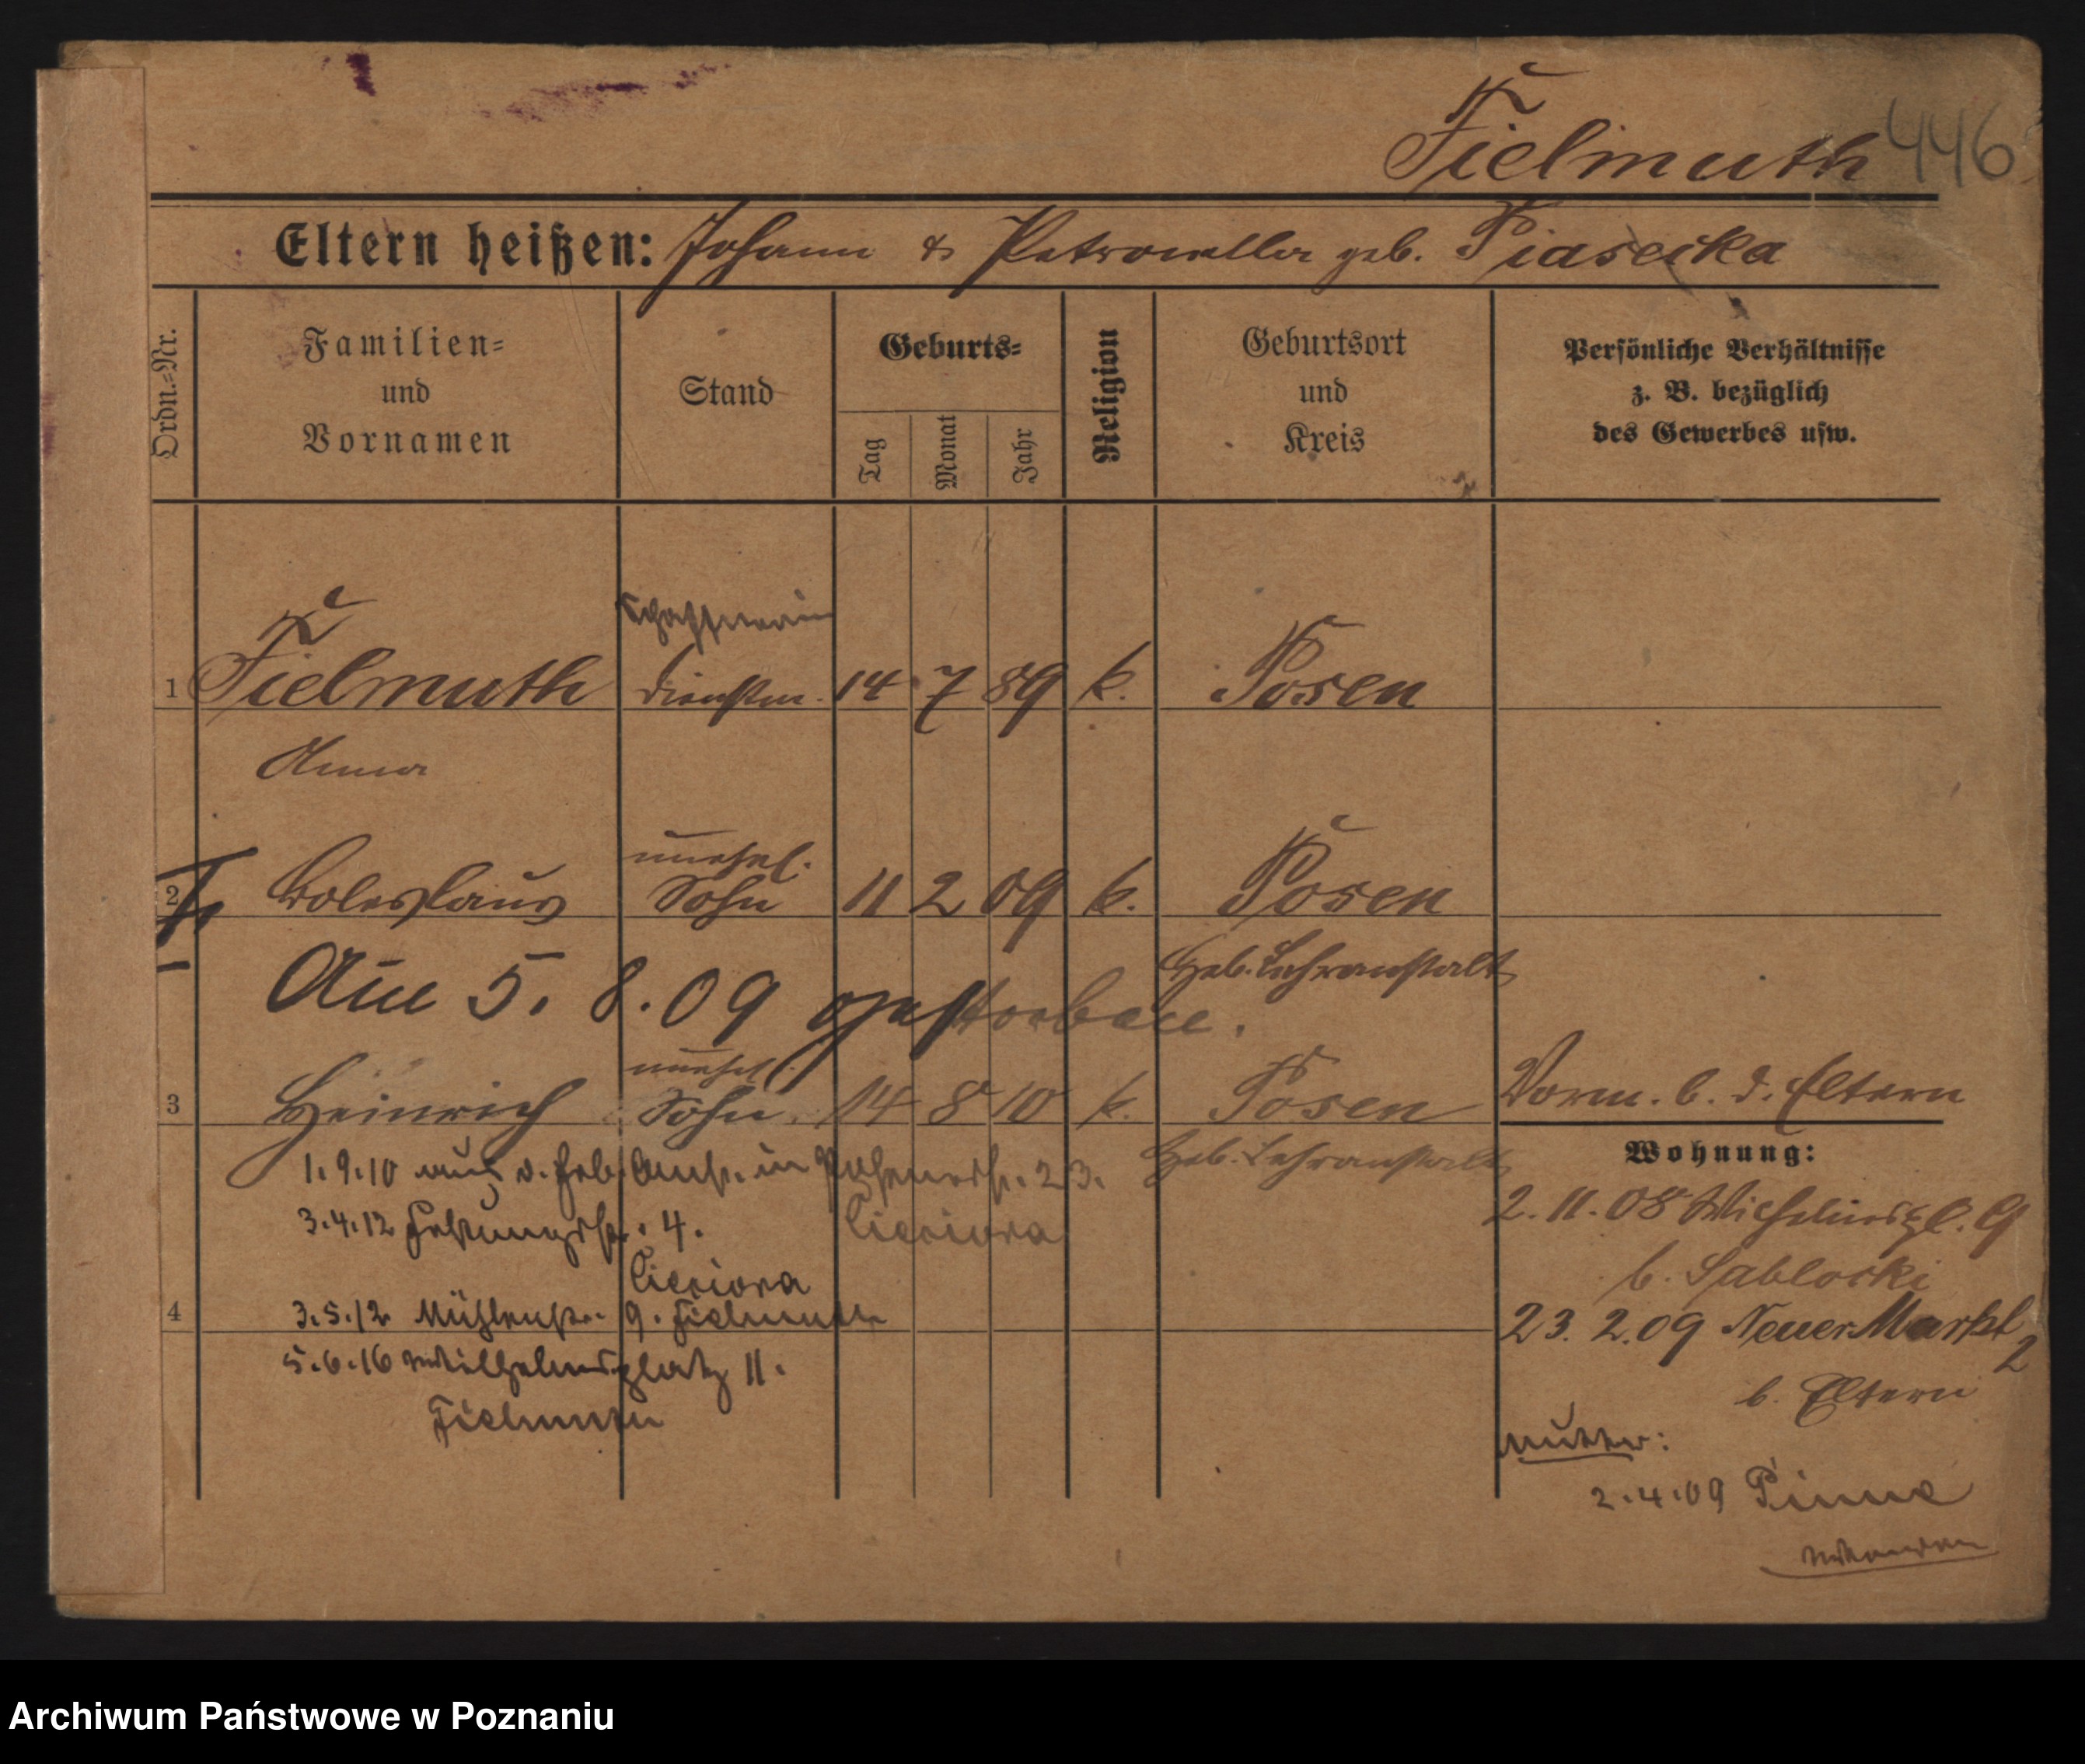 Fielmuth 446
Eltern heißen: Johann & Petronella geb. Piasecka
Ordn.=Nr.
Familien=
und
Vornamen
Stand
Geburts=
Tag
Monat
Jahr
Religion
Geburtsort
und
Kreis
Persönliche Verhältnisse
z. B. bezüglich
des Gewerbes usw.
1 Fielmuth Dienstm. 14 7 89 k. Posen
Anna
unehel.
2 Boleslaus Sohn 11 2 09 k. Posen
Heb. Lehranstalt
Am 5. 8. 09 gestorben.
unehel.
3 Heinrich Sohn. 14 8 10 k. Posen
Heb. Lehranstalt
Vorm. b. d. Eltern
1.9.10 aus d. Heb. Anst. in 23.
3.4.12 Festungsstr. 4.
3.5.12 Mühlenstr. 9. Fielmuth
4
5.6.16 Wilhelmsplatz 11.
Fielmuth
Wohnung:
2.11.08 Wilhelmspl. 9
b. Jablocki
23. 2.09 Neuer Markt 2
b. Eltern
Mutter:
2.4.09 Pinne
Archiwum Państwowe w Poznaniu